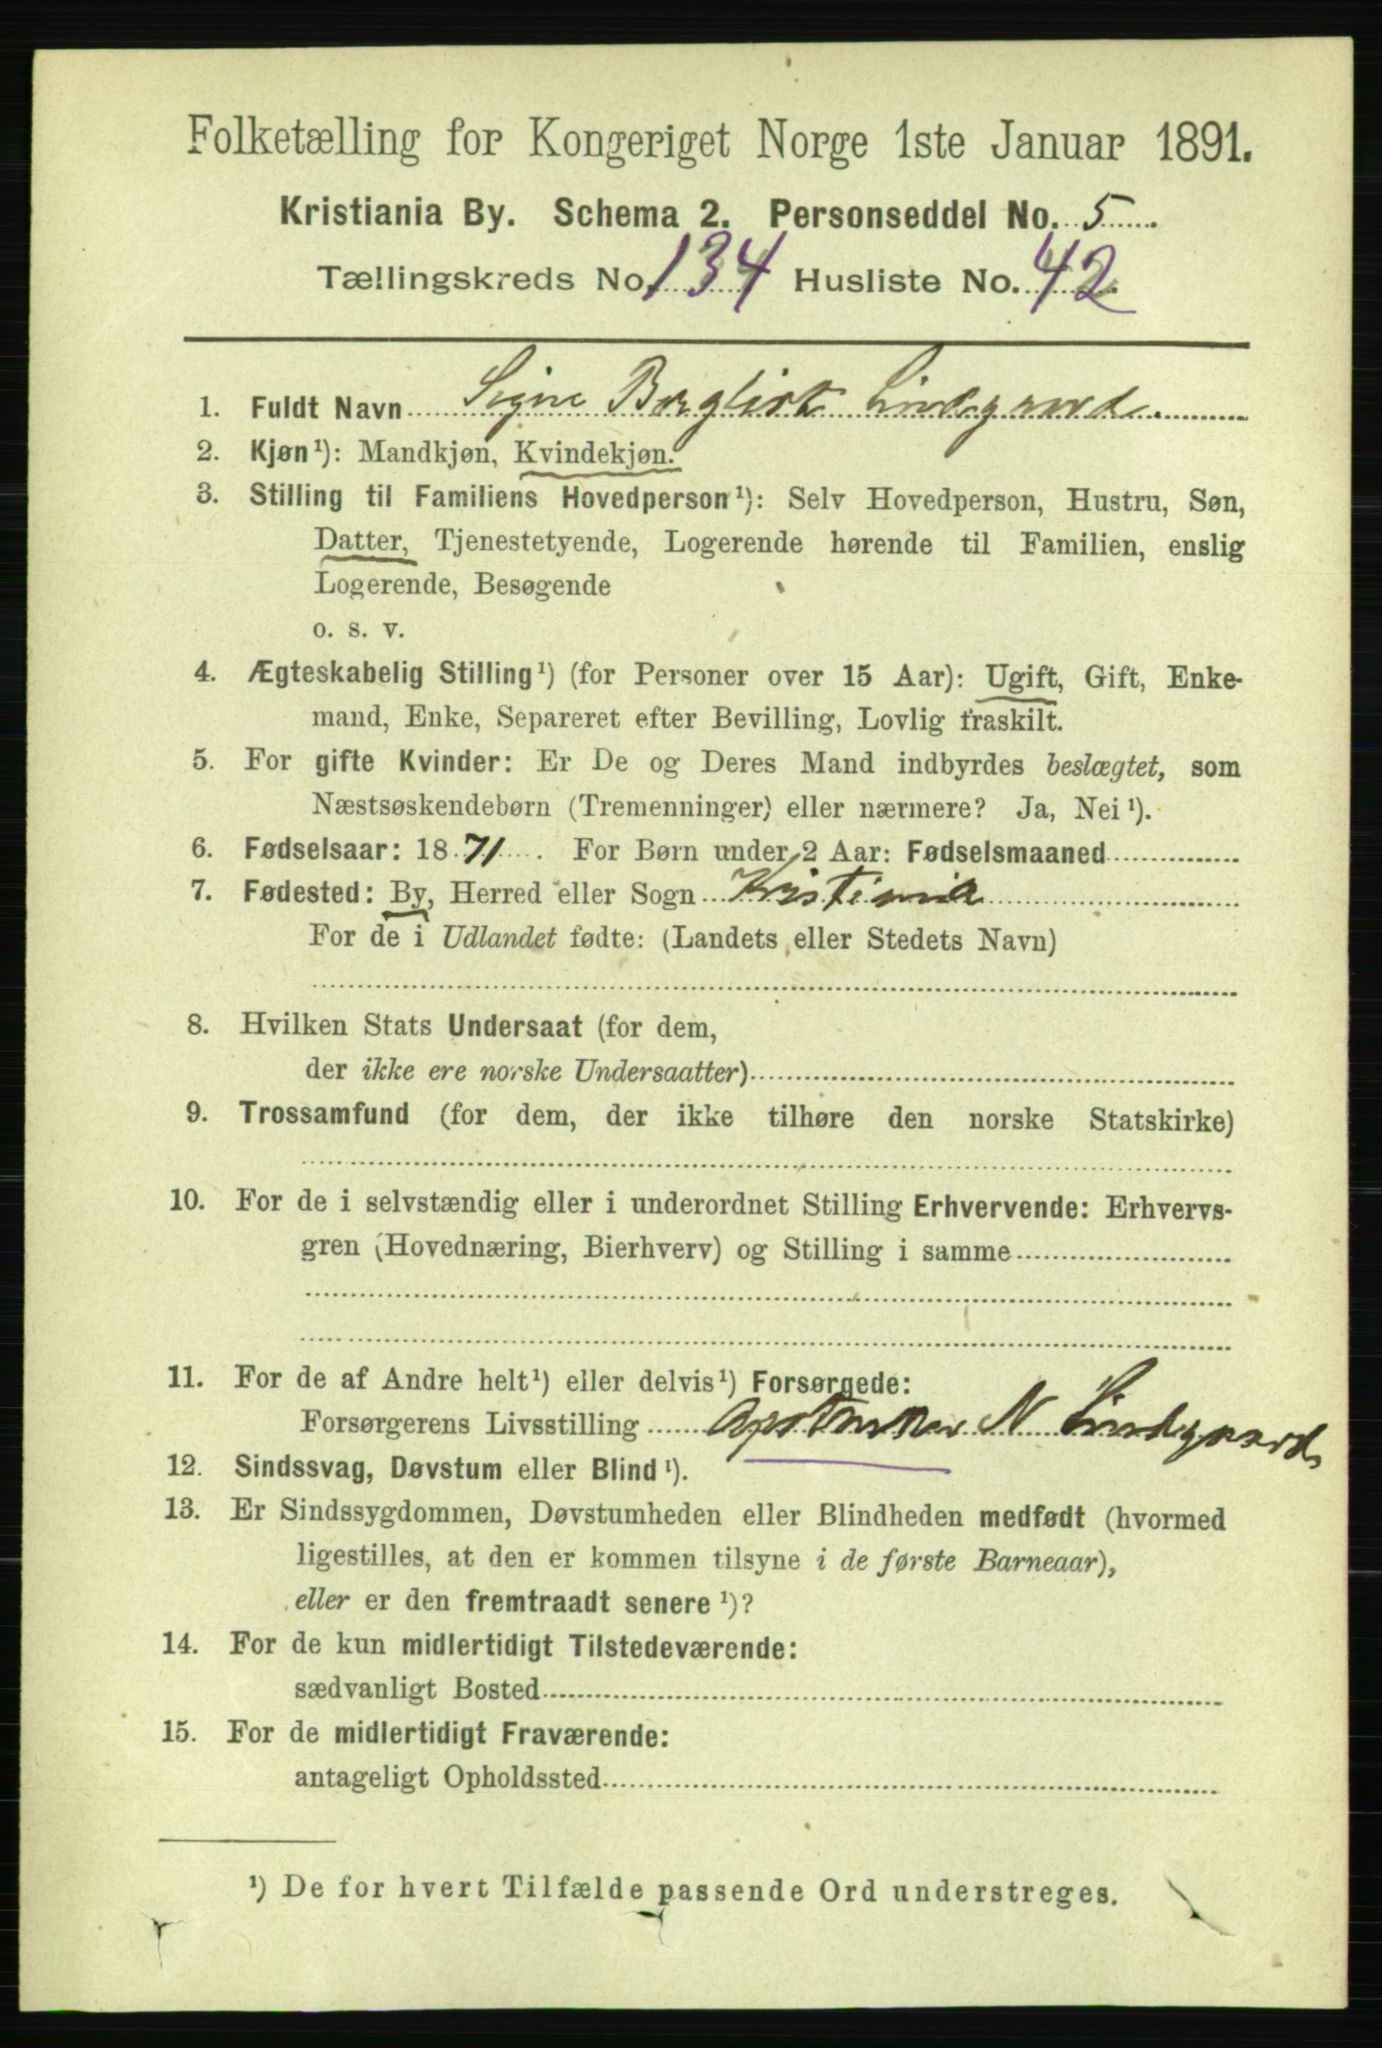 Folketælling for Kongeriget Norge 1ste Januar 1891.
Kristiania By. Schema 2. Personseddel No. 5
Tællingskreds No. 134 Husliste No. 42.
1. Fuldt Navn Signe Lindgaard.
2. Kjøn¹): Mandkjøn, Kvindekjøn.
3. Stilling til Familiens Hovedperson¹): Selv Hovedperson, Hustru, Søn,
Datter, Tjenestetyende, Logerende hørende til Familien, enslig
Logerende, Besøgende
o. s. v.
4. Ægteskabelig Stilling¹) (for Personer over 15 Aar): Ugift, Gift, Enke-
mand, Enke, Separeret efter Bevilling, Lovlig fraskilt.
5. For gifte Kvinder: Er De og Deres Mand indbyrdes beslægtet, som
Næstsøskendebørn (Tremenninger) eller nærmere? Ja, Nei¹).
6. Fødselsaar: 1871. For Børn under 2 Aar: Fødselsmaaned
7. Fødested: By, Herred eller Sogn Kristiania
For de i Udlandet fødte: (Landets eller Stedets Navn)
8. Hvilken Stats Undersaat (for dem,
der ikke ere norske Undersaatter)
9. Trossamfund (for dem, der ikke tilhøre den norske Statskirke)
10. For de i selvstændig eller i underordnet Stilling Erhvervende: Erhvervs-
gren (Hovednæring, Bierhverv) og Stilling i samme
11. For de af Andre helt¹) eller delvis¹) Forsørgede:
Forsørgerens Livsstilling Apotheker N Lindgaard
12. Sindssvag, Døvstum eller Blind¹).
13. Er Sindssygdommen, Døvstumheden eller Blindheden medfødt (hvormed
ligestilles, at den er kommen tilsyne i de første Barneaar),
eller er den fremtraadt senere¹)?
14. For de kun midlertidigt Tilstedeværende:
sædvanligt Bosted
15. For de midlertidigt Fraværende:
antageligt Opholdssted
¹) De for hvert Tilfælde passende Ord understreges.